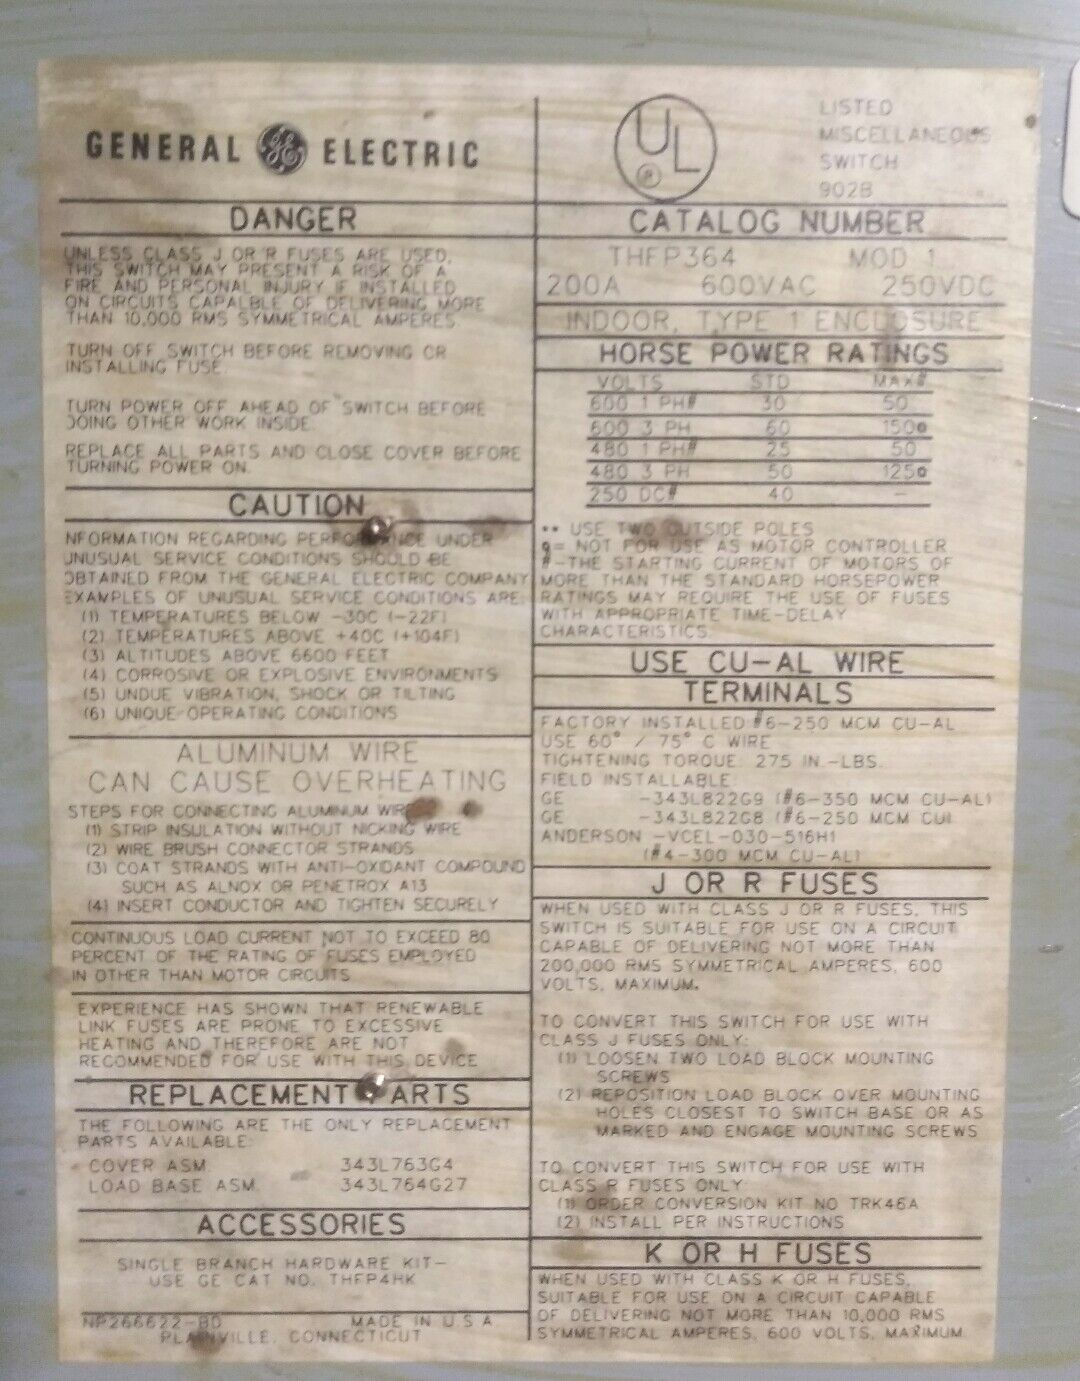 GENERAL GE ELECTRIC
DANGER
UNLESS CLASS J OR R FUSES ARE USED,
THIS SWITCH MAY PRESENT A RISK OF A
FIRE AND PERSONAL INJURY IF INSTALLED
ON CIRCUITS CAPALBLE OF DELIVERING MORE
THAN 10,000 RMS SYMMETRICAL AMPERES.
TURN OFF SWITCH BEFORE REMOVING OR
INSTALLING FUSE.
TURN POWER OFF AHEAD OF SWITCH BEFORE
DOING OTHER WORK INSIDE.
REPLACE ALL PARTS AND CLOSE COVER BEFORE
TURNING POWER ON.
CAUTION
INFORMATION REGARDING PERFORMANCE UNDER
UNUSUAL SERVICE CONDITIONS SHOULD BE
OBTAINED FROM THE GENERAL ELECTRIC COMPANY
EXAMPLES OF UNUSUAL SERVICE CONDITIONS ARE:
(1) TEMPERATURES BELOW -30C (-22F)
(2) TEMPERATURES ABOVE +40C (+104F)
(3) ALTITUDES ABOVE 6600 FEET
(4) CORROSIVE OR EXPLOSIVE ENVIRONMENTS
(5) UNDUE VIBRATION, SHOCK OR TILTING
(6) UNIQUE OPERATING CONDITIONS
ALUMINUM WIRE
CAN CAUSE OVERHEATING
STEPS FOR CONNECTING ALUMINUM WIRE
(1) STRIP INSULATION WITHOUT NICKING WIRE
(2) WIRE BRUSH CONNECTOR STRANDS
(3) COAT STRANDS WITH ANTI-OXIDANT COMPOUND
SUCH AS ALNOX OR PENETROX A13
(4) INSERT CONDUCTOR AND TIGHTEN SECURELY
CONTINUOUS LOAD CURRENT NOT TO EXCEED 80
PERCENT OF THE RATING OF FUSES EMPLOYED
IN OTHER THAN MOTOR CIRCUITS
EXPERIENCE HAS SHOWN THAT RENEWABLE
LINK FUSES ARE PRONE TO EXCESSIVE
HEATING AND THEREFORE ARE NOT
RECOMMENDED FOR USE WITH THIS DEVICE
REPLACEMENT PARTS
THE FOLLOWING ARE THE ONLY REPLACEMENT
PARTS AVAILABLE:
COVER ASM. 343L763G4
LOAD BASE ASM. 343L764G27
ACCESSORIES
SINGLE BRANCH HARDWARE KIT-
USE GE CAT NO. THFP4HK
NP266622-BD MADE IN U.S.A
PLAINVILLE, CONNECTICUT
UL ®
LISTED
MISCELLANEOUS
SWITCH
902B
CATALOG NUMBER
THFP364 MOD 1
200A 600VAC 250VDC
INDOOR, TYPE 1 ENCLOSURE
HORSE POWER RATINGS
VOLTS STD MAX#
600 1 PH# 30 50
600 3 PH 60 150@
480 1 PH# 25 50
480 3 PH 50 125@
250 DC# 40 -
** USE TWO OUTSIDE POLES
@= NOT FOR USE AS MOTOR CONTROLLER
#-THE STARTING CURRENT OF MOTORS OF
MORE THAN THE STANDARD HORSEPOWER
RATINGS MAY REQUIRE THE USE OF FUSES
WITH APPROPRIATE TIME-DELAY
CHARACTERISTICS.
USE CU-AL WIRE
TERMINALS
FACTORY INSTALLED #6-250 MCM CU-AL
USE 60° / 75° C WIRE
TIGHTENING TORQUE: 275 IN.-LBS.
FIELD INSTALLABLE:
GE -343L822G9 (#6-350 MCM CU-AL)
GE -343L822G8 (#6-250 MCM CU)
ANDERSON -VCEL-030-516H1
(#4-300 MCM CU-AL)
J OR R FUSES
WHEN USED WITH CLASS J OR R FUSES, THIS
SWITCH IS SUITABLE FOR USE ON A CIRCUIT
CAPABLE OF DELIVERING NOT MORE THAN
200,000 RMS SYMMETRICAL AMPERES, 600
VOLTS, MAXIMUM.
TO CONVERT THIS SWITCH FOR USE WITH
CLASS J FUSES ONLY:
(1) LOOSEN TWO LOAD BLOCK MOUNTING
SCREWS
(2) REPOSITION LOAD BLOCK OVER MOUNTING
HOLES CLOSEST TO SWITCH BASE OR AS
MARKED AND ENGAGE MOUNTING SCREWS
TO CONVERT THIS SWITCH FOR USE WITH
CLASS R FUSES ONLY:
(1) ORDER CONVERSION KIT NO TRK46A
(2) INSTALL PER INSTRUCTIONS
K OR H FUSES
WHEN USED WITH CLASS K OR H FUSES,
SUITABLE FOR USE ON A CIRCUIT CAPABLE
OF DELIVERING NOT MORE THAN 10,000 RMS
SYMMETRICAL AMPERES, 600 VOLTS, MAXIMUM